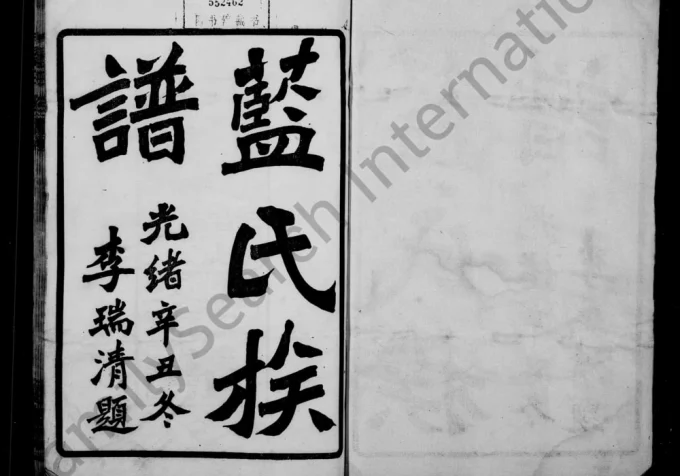 552462
藍氏族
譜
光緒辛丑冬
李瑞清題
FamilySearch International